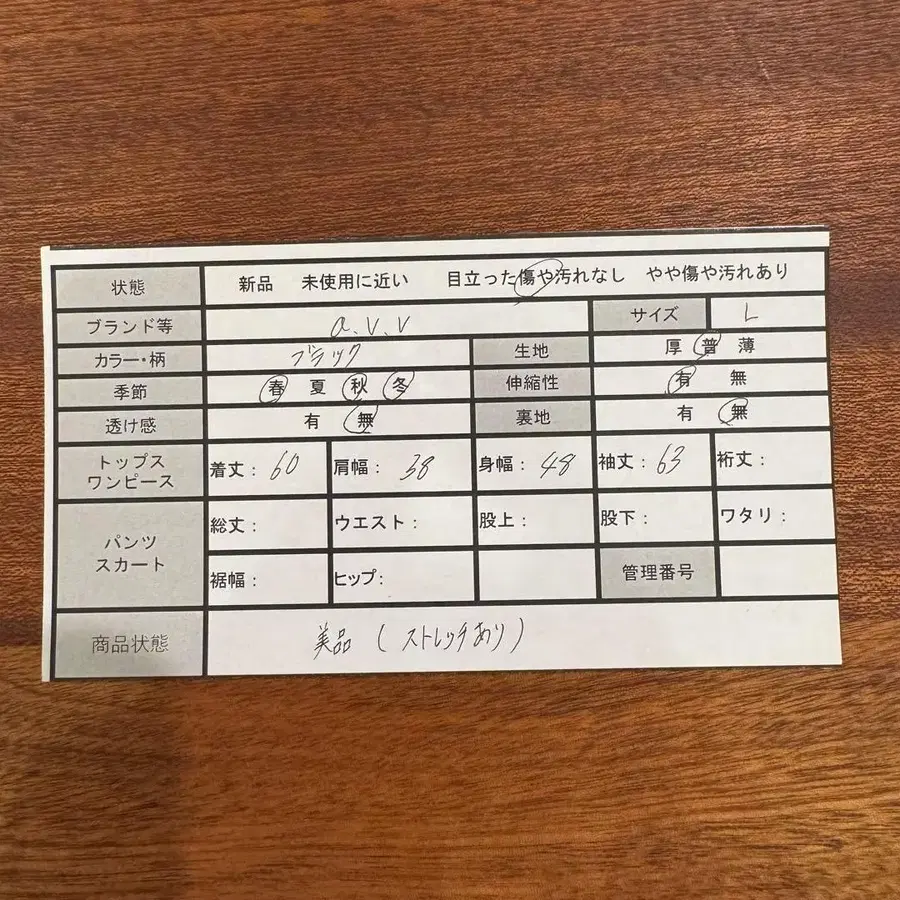 状態 新品 未使用に近い 目立った傷や汚れなし やや傷や汚れあり
ブランド等 a.v.v サイズ L
カラー・柄 ブラック 生地 厚 普 薄
季節 春 夏 秋 冬 伸縮性 有 無
透け感 有 無 裏地 有 無
トップス
ワンピース 着丈: 60 肩幅: 38 身幅: 48 袖丈: 63 裄丈:
パンツ
スカート 総丈: ウエスト: 股上: 股下: ワタリ:
裾幅: ヒップ: 管理番号
商品状態 美品 (ストレッチあり)